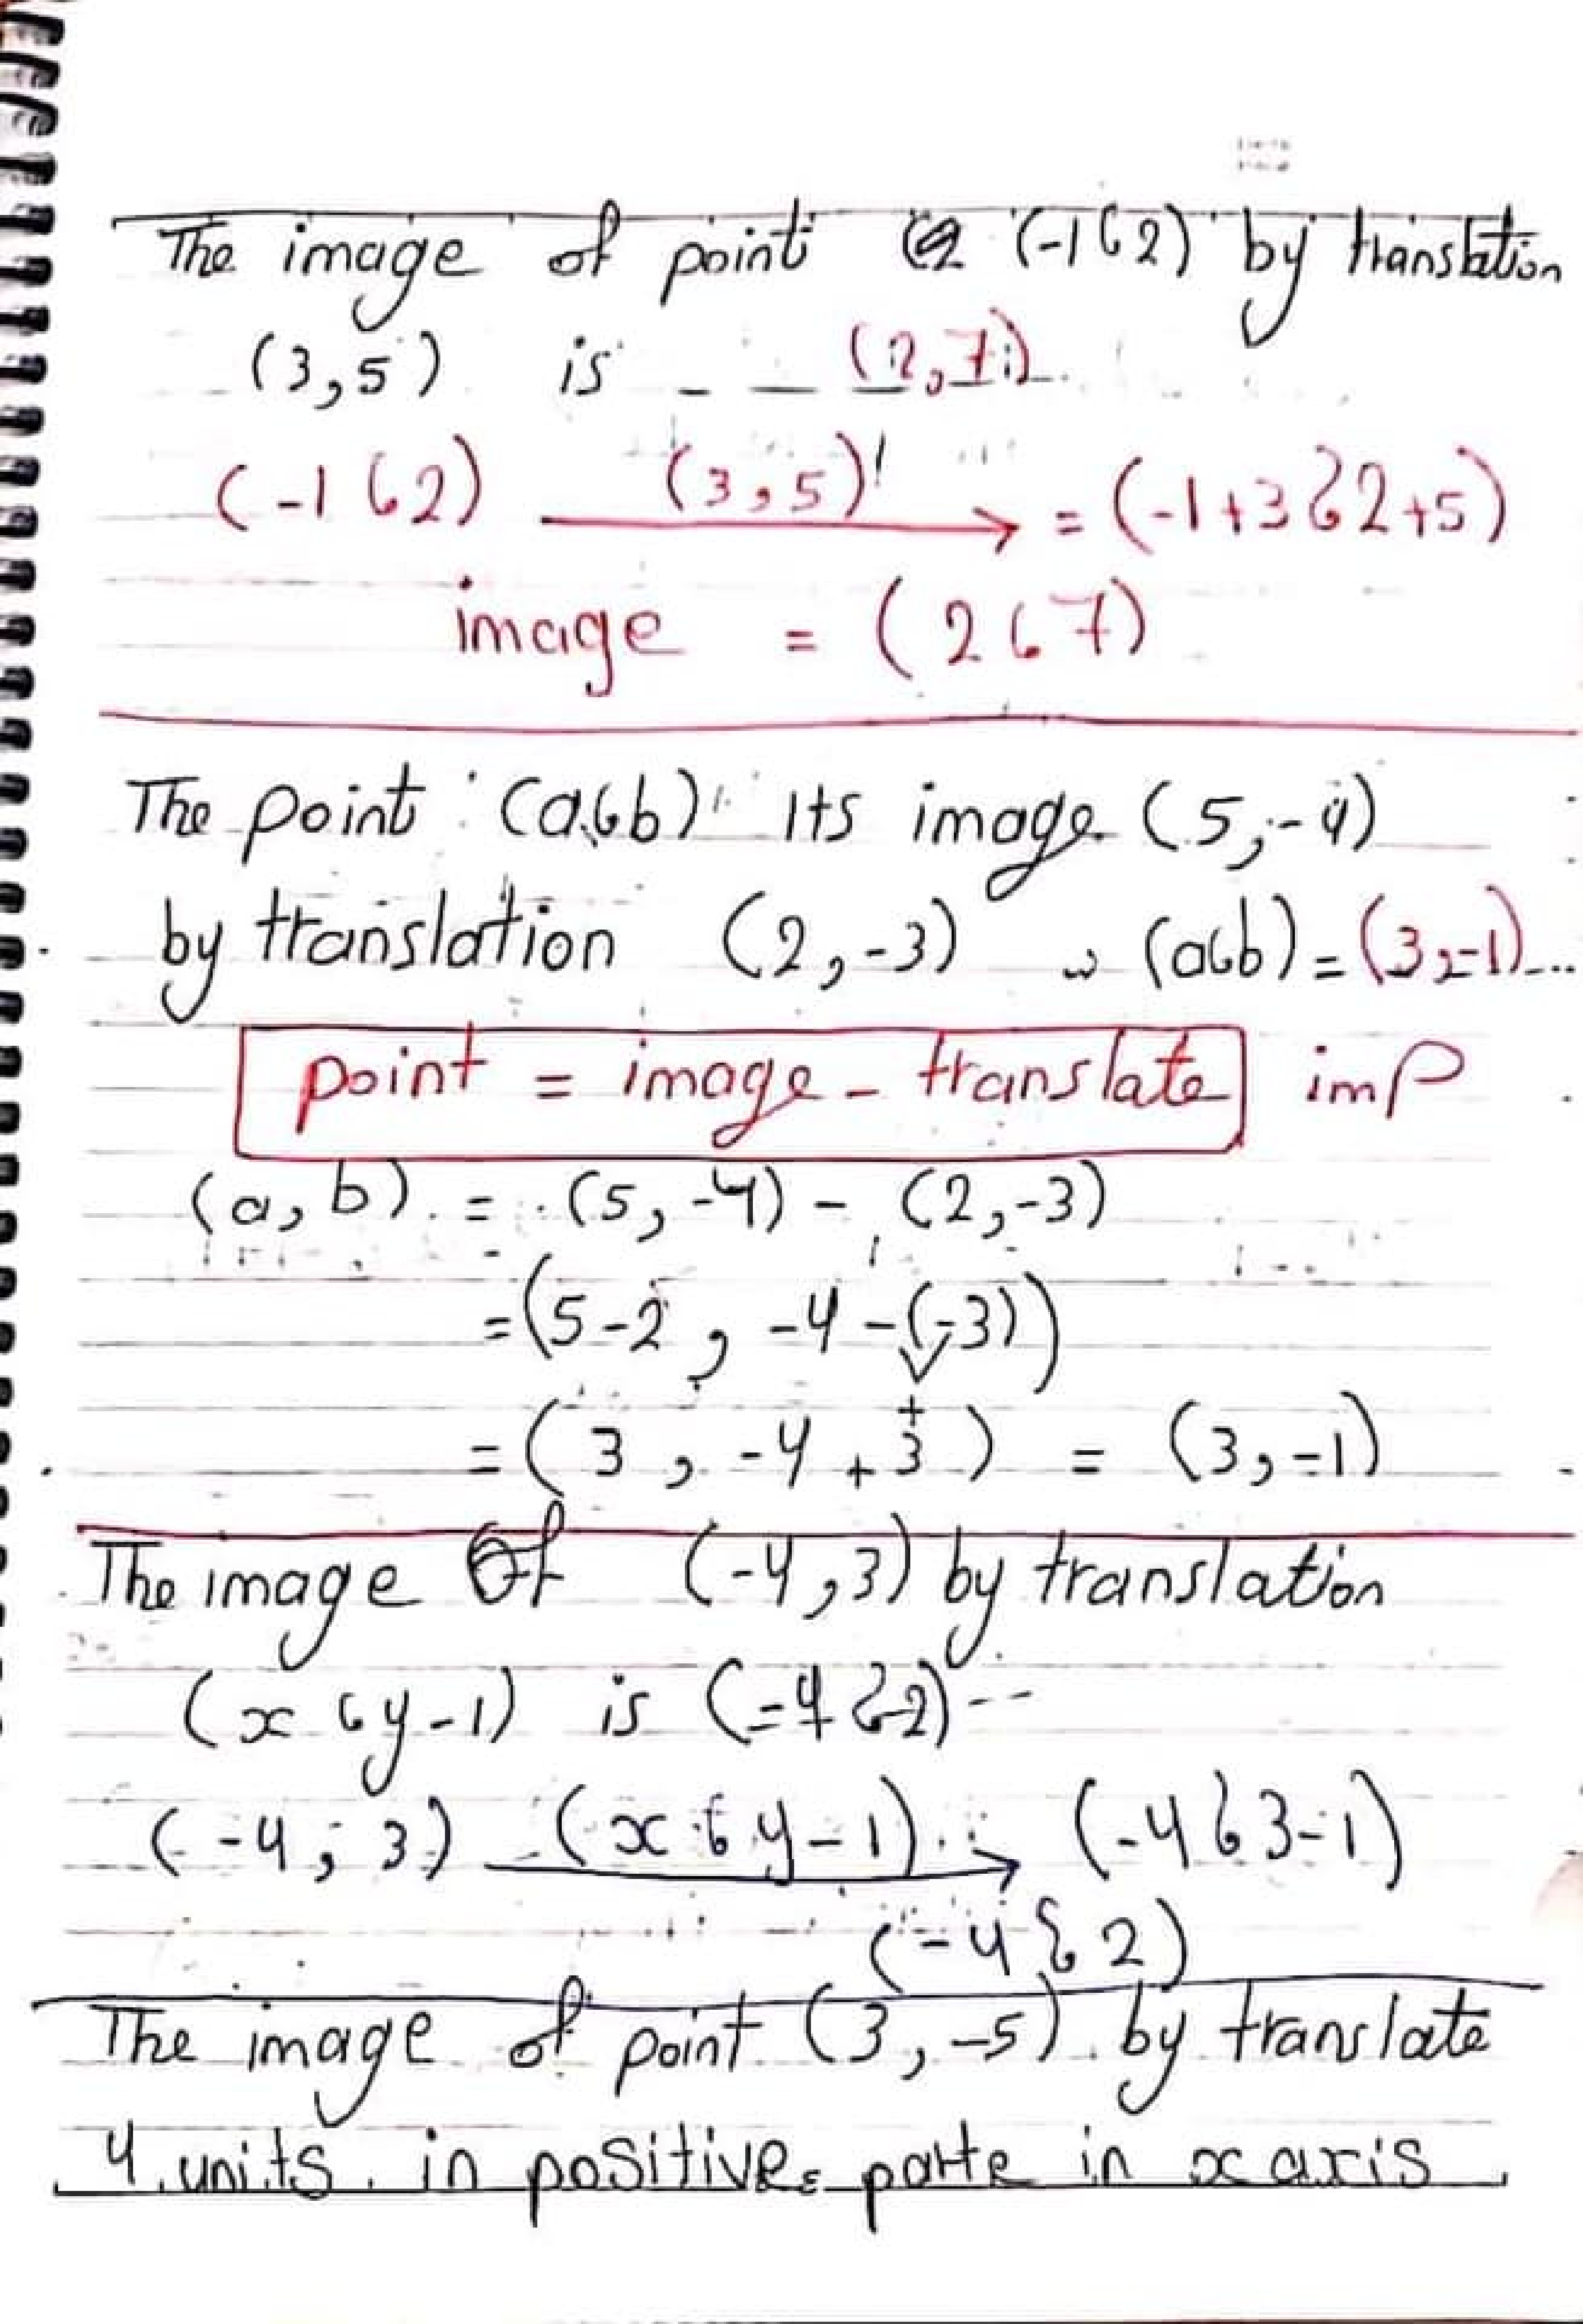 The image of point (-1 ، 2) by translation
(3,5) is - - (2,7)
(-1 ، 2) (3,5) → = (-1+3 ، 2+5)
image = (2 ، 7)
The point (a ، b) its image (5,-4)
by translation (2,-3) و (a ، b) = (3,-1)...
point = image - translate imp
(a, b) = (5, -4) - (2,-3)
=(5-2 , -4 -(-3))
+
=(3 , -4 + 3) = (3,-1)
The image of (-4,3) by translation
(x ، y-1) is (-4 ، 2)--
(-4, 3) (x ، y-1) → (-4 ، 3-1)
(-4 ، 2)
The image of point (3, -5) by translate
4 units in positive parte in x axis